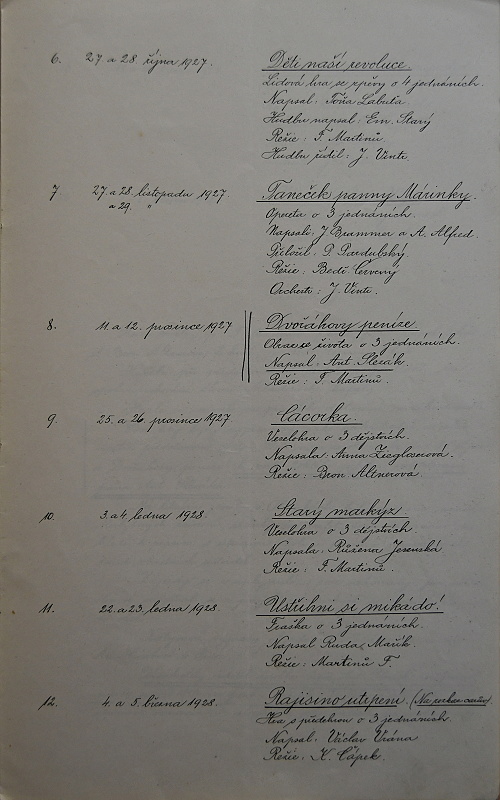 6. 27. a 28. října 1927. Děti naší revoluce.
Lidová hra se zpěvy o 4 jednáních.
Napsal: Tóňa Labuta
Hudbu napsal: Em. Starý
Režie: F. Martinů
Hudbu řídil: J. Vent.
7. 27. a 28. listopadu 1927. Taneček panny Márinky.
a 29. "
Opereta o 3 jednáních.
Napsali: J. Brammer a A. Alfred.
Přeložil: P. Pardubský.
Režie: Bedř. Červený
Orchestr: J. Vent.
8. 11. a 12. prosince 1927 Dvořákovy peníze.
Obraz ze života o 3 jednáních.
Napsal: Ant. Slezák.
Režie: F. Martinů.
9. 25. a 26. prosince 1927 Cácorka.
Veselohra o 3 dějstvích.
Napsala: Anna Ziegloserová.
Režie: Bron. Altnerová.
10. 3. a 4. ledna 1928. Starý markýz
Veselohra o 3 dějstvích
Napsala: Růžena Jesenská
Režie: F. Martinů.
11. 22. a 23. ledna 1928. Ustřihni si mikádo!
Fraška o 3 jednáních.
Napsal Ruda Mařík.
Režie: Martinů F.
12. 4. a 5. března 1928. Rajisino utrpení. (Na rozkaz carův)
Hra s předehrou o 3 jednáních.
Napsal: Václav Vrána.
Režie: K. Čápek.